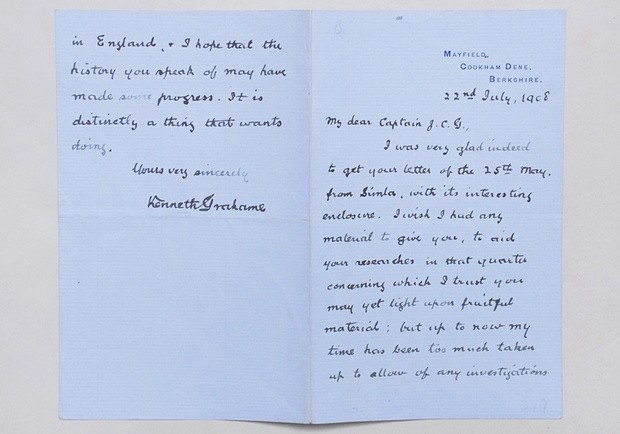 MAYFIELD,
COOKHAM DENE,
BERKSHIRE.
22nd July, 1908
My dear Captain J.C.G.,
I was very glad indeed
to get your letter of the 25th May,
from Simla, with its interesting
enclosure. I wish I had any
material to give you, to aid
your researches in that quarter
concerning which I trust you
may yet light upon fruitful
material; but up to now my
time has been too much taken
up to allow of any investigations
in England, & I hope that the
history you speak of may have
made some progress. It is
distinctly a thing that wants
doing.
Yours very sincerely
Kenneth Grahame